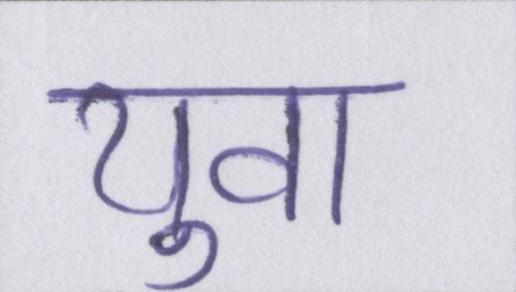 युवा